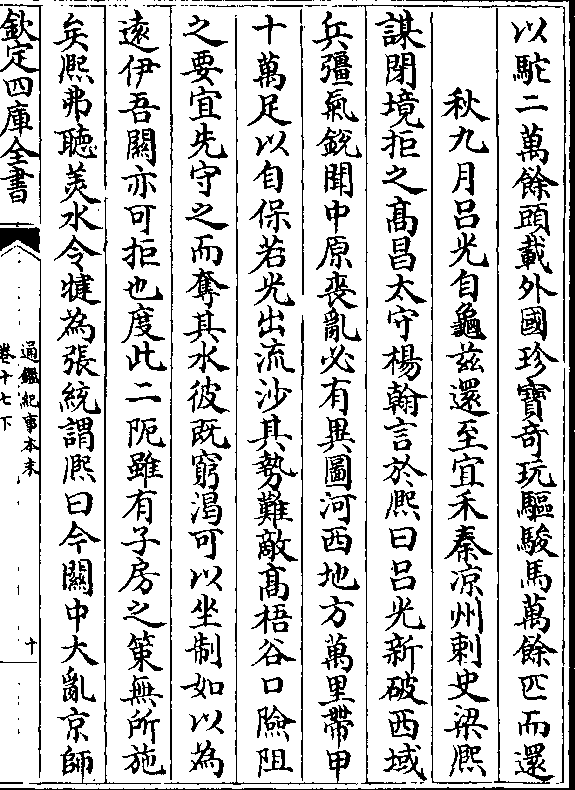 以駝二萬餘頭載外國珍寶奇玩驅駿馬萬餘匹而還
秋九月呂光自龜兹還至宜禾秦涼州刺史梁熙
謀閉境拒之髙昌太守楊翰言於熙曰呂光新破西域
兵彊氣銳聞中原喪亂必有異圖河西地方萬里帶甲
十萬足以自保若光出流沙其勢難敵髙梧谷口險阻
之要宜先守之而奪其水彼既窮渴可以坐制如以為
遠伊吾關亦可拒也度此二阨雖有子房之策無所施
矣熙弗聽美水令犍為張統謂熙曰今關中大亂京師
欽定四庫全書
通鑑紀事本末
卷十七下
十